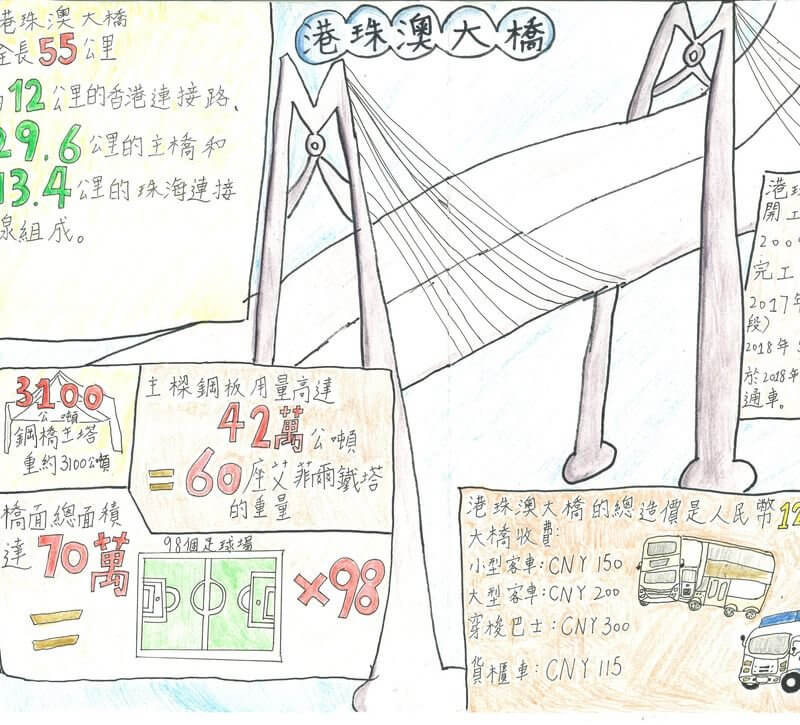 港珠澳大橋
港珠澳大橋
全長55公里
12公里的香港連接路、
29.6公里的主橋和
13.4公里的珠海連接
線組成。
港珠
開工
200
完工
2017年
段)
2018年
於2018年
通車。
3100
公噸
鋼橋主塔
重約3100公噸
主樑鋼板用量高達
42萬公噸
=60座艾菲爾鐵塔
的重量
橋面總面積
達70萬
=
98個足球場
×98
港珠澳大橋的總造價是人民幣12
大橋收費:
小型客車:CNY 150
大型客車:CNY 200
穿梭巴士:CNY 300
貨櫃車:CNY 115